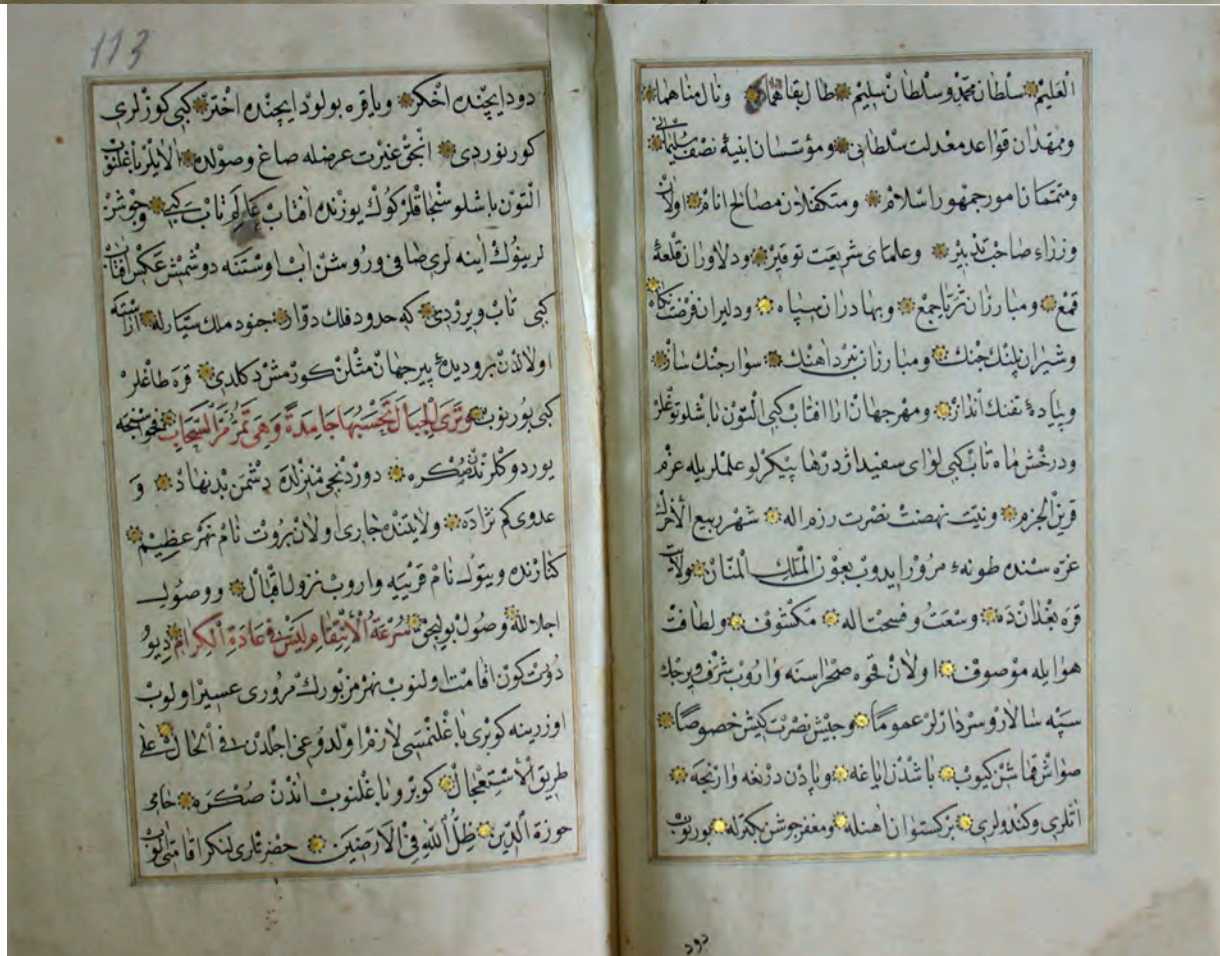 العليم سلطان محمد وسلطان سليم طال بقاهما ونال مناهما
وممهدان قواعد معدلت سلطانی ومؤسسان ابنیهٔ نصفت سلیمانی
ومتممان امور جمهور اسلام ومتكفلان مصالح انام اولان
وزراء صاحب تدبیر وعلمای شریعت توقیر ودلاوران قلعه
قمع ومبارزان ثریا جمع وبهادران سپاه ودلیران فرصت نكاه
وشیران پلنك جنك ومبارزان نبرد اهنك سوار جنك ساز
وپیادهٔ تفنك انداز ومهر جهان ارا افتاب كبی التون باشلو توغلر
ودرخش ماه تاب كبی لوای سفید اژدرها پیكرلو علملر یله عزم
قرین الحزم ونیت نهضت نصرت رزم اله شهر ربیع الأخرك
غره سنده طونه ء مرور ایدوب بعون الملك المنان ولایت
قره بغدانده وسعت وفسحت اله مكشوف ولطافت
هوا ایله موصوف اولان صحراسنه واروب شرف ویرجك
سپه سالار وسردارلر عموما وجیش نصرت كیش خصوصا
قماش كیوب باشدن ایاغه وپایدن
اتلری وكندولری بركستوان اهنله ومغفر جوشن بكترله بورنوب
دود
113
دود ایچنده اخكر ویا قره بولود ایچنده اختر كبی كوزلری
كورنوردی انجق غیرت عرضله صاغ وصولده الایلر باغلنوب
التون باشلو سنجاقلر كوك یوزنده افتاب عالم تاب كبی وجوشن
لرینوك اینه لری صافی وروشن اب اوستنه دوشمش عكس افتاب
كبی تاب ویرردی كه حدود فلك دوار جنود ملك سیار له اراسته
اولالدن برو دیدهٔ پیر جهان مثلن كورمش دكلدی قره طاغلر
كبی یورینوب وترى الجبال تحسبها جامدة وهى تمر مر السحاب
یوردوكلرندنصكره دوردنجی منزلده دشمن بدنهاد و
عدوی كم نژاده ولایتنده جاری اولان بروت نام نهر عظیم
كنارنده ویتول نام قریه یه واروب نزول اقبال ووصول
اجلالله وصول بولیجق سرعة الانتقام ليس فى عادة الكرام دیو
دورت كون اقامت اولنوب نهر مزبورك مروری عسیر اولوب
اوزرینه كوپری باغلنمسی لازم اولدوغی اجلدن فى الحال على
طریق الاستعجال كوپرو باغلنوب اندن صكره حامی
حوزة الدین ظل الله فى الارضین حضرتلری لنكر اقامتی